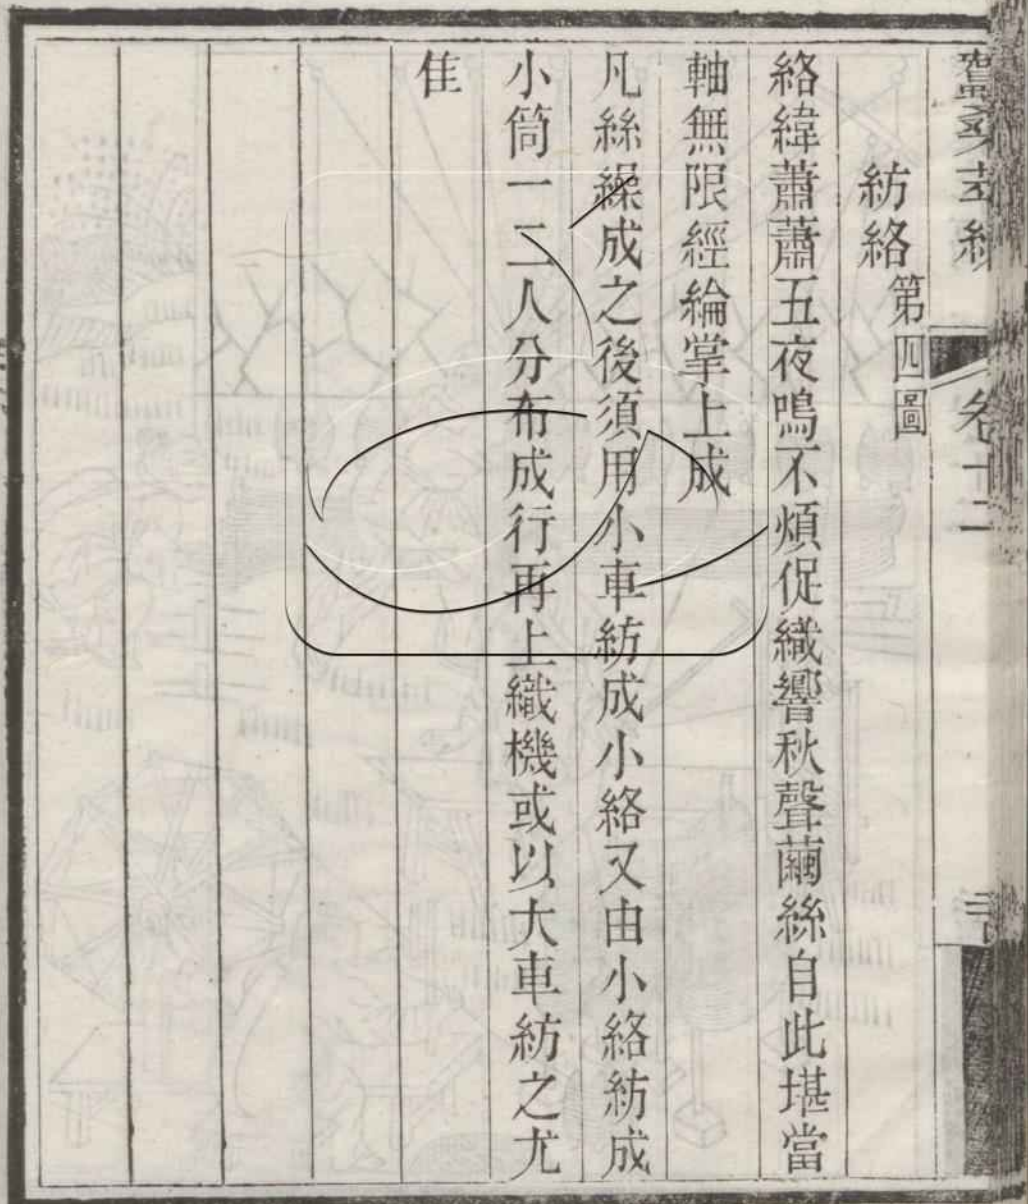 蠶桑萃編 卷十二
紡絡第四圖
絡緯蕭蕭五夜鳴不煩促織響秋聲繭絲自此堪當
軸無限經綸掌上成
凡絲繰成之後須用小車紡成小絡又由小絡紡成
小筒一二人分布成行再上織機或以大車紡之尤
佳